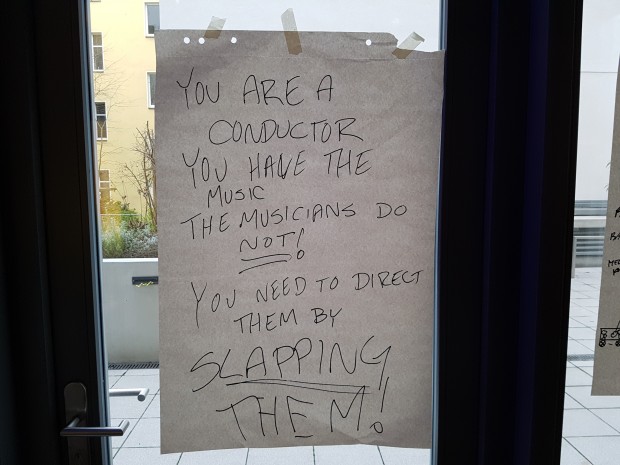 YOU ARE A
CONDUCTOR
YOU HAVE THE
MUSIC
THE MUSICIANS DO
NOT!
YOU NEED TO DIRECT
THEM BY
SLAPPING
THEM!